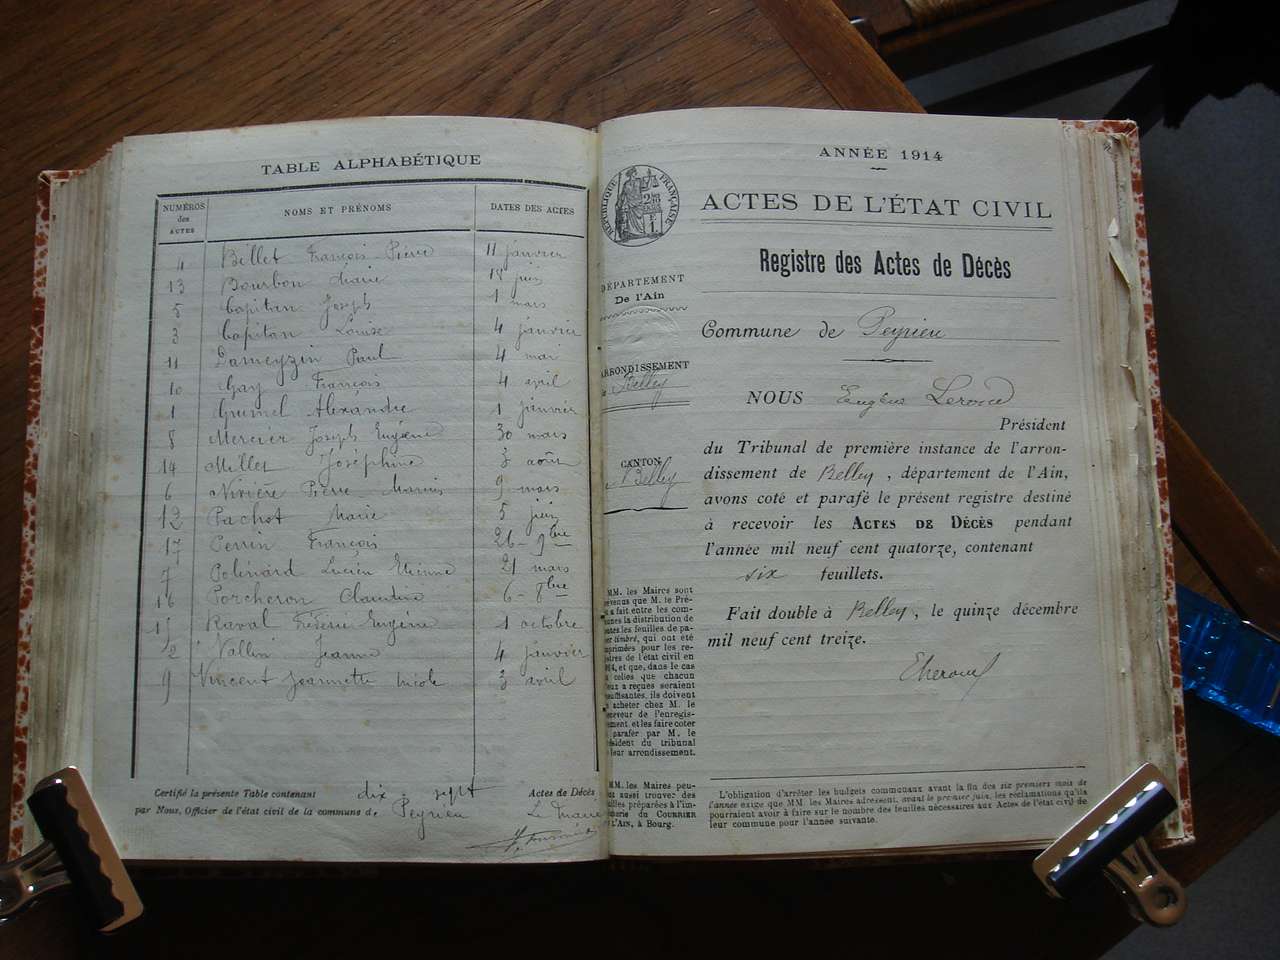 TABLE ALPHABÉTIQUE
NUMÉROS des ACTES NOMS ET PRÉNOMS DATES DES ACTES
4 Billet François Pierre 11 janvier
13 Bourbon Marie 18 juin
5 Capitan Joseph 1 mars
3 Capitan Louise 4 janvier
11 Dameyzin Paul 4 mai
10 Gay François 4 avril
1 Grumel Alexandre 1 janvier
8 Mercier Joseph Eugène 30 mars
14 Millet Joséphine 3 août
6 Nivière Pierre Marius 9 mars
12 Pachot Marie 5 juin
17 Perrin François 26 - 9bre
7 Polinard Lucien Etienne 21 mars
16 Porcheron Claudine 6 - 8bre
15 Raval Frédéric Eugène 1 octobre
2 Vallin Jeanne 4 janvier
9 Vincent Jeannette 3 avril
Certifié la présente Table contenant dix-sept Actes de Décès
par Nous, Officier de l'état civil de la commune de Peyrieu Le Maire
ANNÉE 1914
RÉPUBLIQUE FRANÇAISE
ACTES DE L'ÉTAT CIVIL
Registre des Actes de Décès
DÉPARTEMENT
De l'Ain
Commune de Peyrieu
ARRONDISSEMENT
Belley
CANTON
Belley
NOUS Eugène
Président
du Tribunal de première instance de l'arron-
dissement de Belley, département de l'Ain,
avons coté et parafé le présent registre destiné
à recevoir les ACTES DE DÉCÈS pendant
l'année mil neuf cent quatorze, contenant
six feuillets.
Fait double à Belley, le quinze décembre
mil neuf cent treize.
MM. les Maires sont
prévenus que M. le Pré-
a fait entre les com-
munes la distribution de
toutes les feuilles de pa-
pier timbré, qui ont été
imprimées pour les re-
gistres de l'état civil en
et que, dans le cas
celles que chacun
eux a reçues seraient
insuffisantes, ils doivent
acheter chez M. le
receveur de l'enregis-
trement et les faire coter
parafer par M. le
président du tribunal
leur arrondissement.
MM. les Maires peu-
aussi trouver des
feuilles préparées à l'im-
primerie du COURRIER
DE L'AIN, à Bourg.
L'obligation d'arrêter les budgets communaux avant la fin des six premiers mois de
l'année exige que MM. les Maires adressent, avant le premier juin, les réclamations qu'ils
pourraient avoir à faire sur le nombre des feuilles nécessaires aux Actes de l'état civil de
leur commune pour l'année suivante.